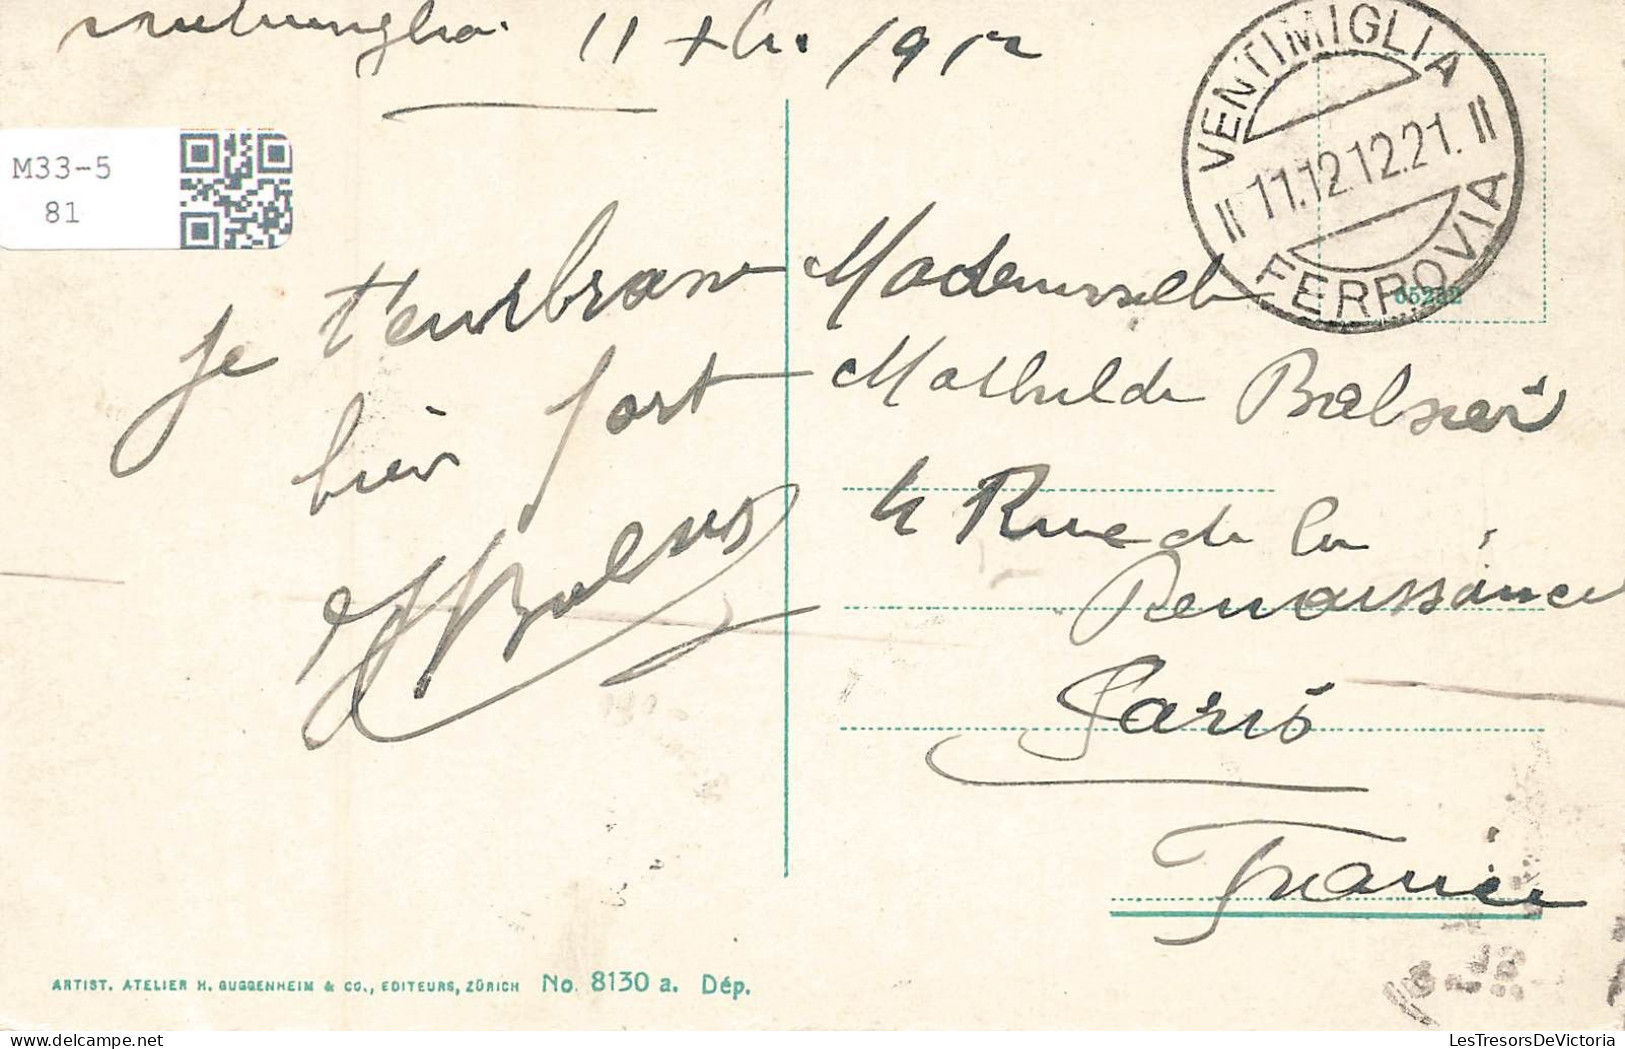 11 Xbre 1912
VENTIMIGLIA
11.12.12.21.
FERROVIA
65282
M33-5
81
Je t'embrasse
bien fort
Mademoiselle
Mathilde
4 Rue de la
Renaissance
Paris
France
ARTIST. ATELIER H. GUGGENHEIM & CO., EDITEURS, ZÜRICH No. 8130 a. Dép.
LesTresorsDeVictoria